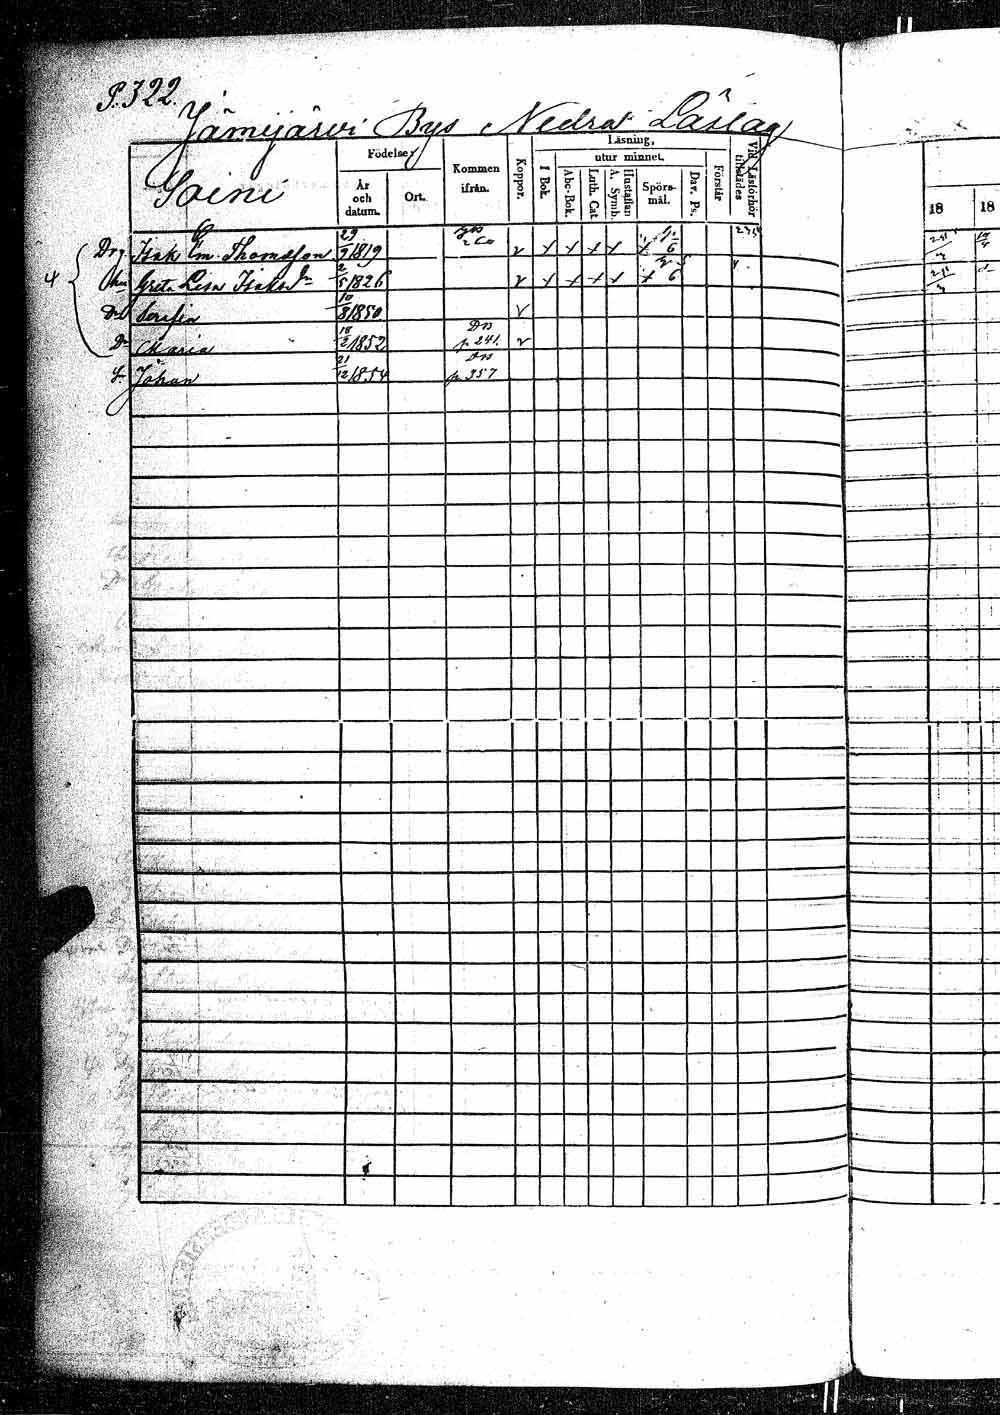 P. 322.
Jämijärvi Bys Nedra Läslag
Soini
Födelse,
År och datum.
Ort.
Kommen ifrån.
Koppor.
Läsning,
I Bok.
utur minnet.
Abc-Bok.
Luth. Cat.
Hustaflan A. Symb.
Spörsmål.
Dav. Ps.
Förstår
Vid Läsförhör tillstädes
18 18
Isak Em. Thomasson 29/9 1819
4 Greta Lisa Isaksdr 2/5 1826 6
Serafia 10/8 1850
Maria 18/2 1852 p 241.
Johan 21/12 1854 p. 357